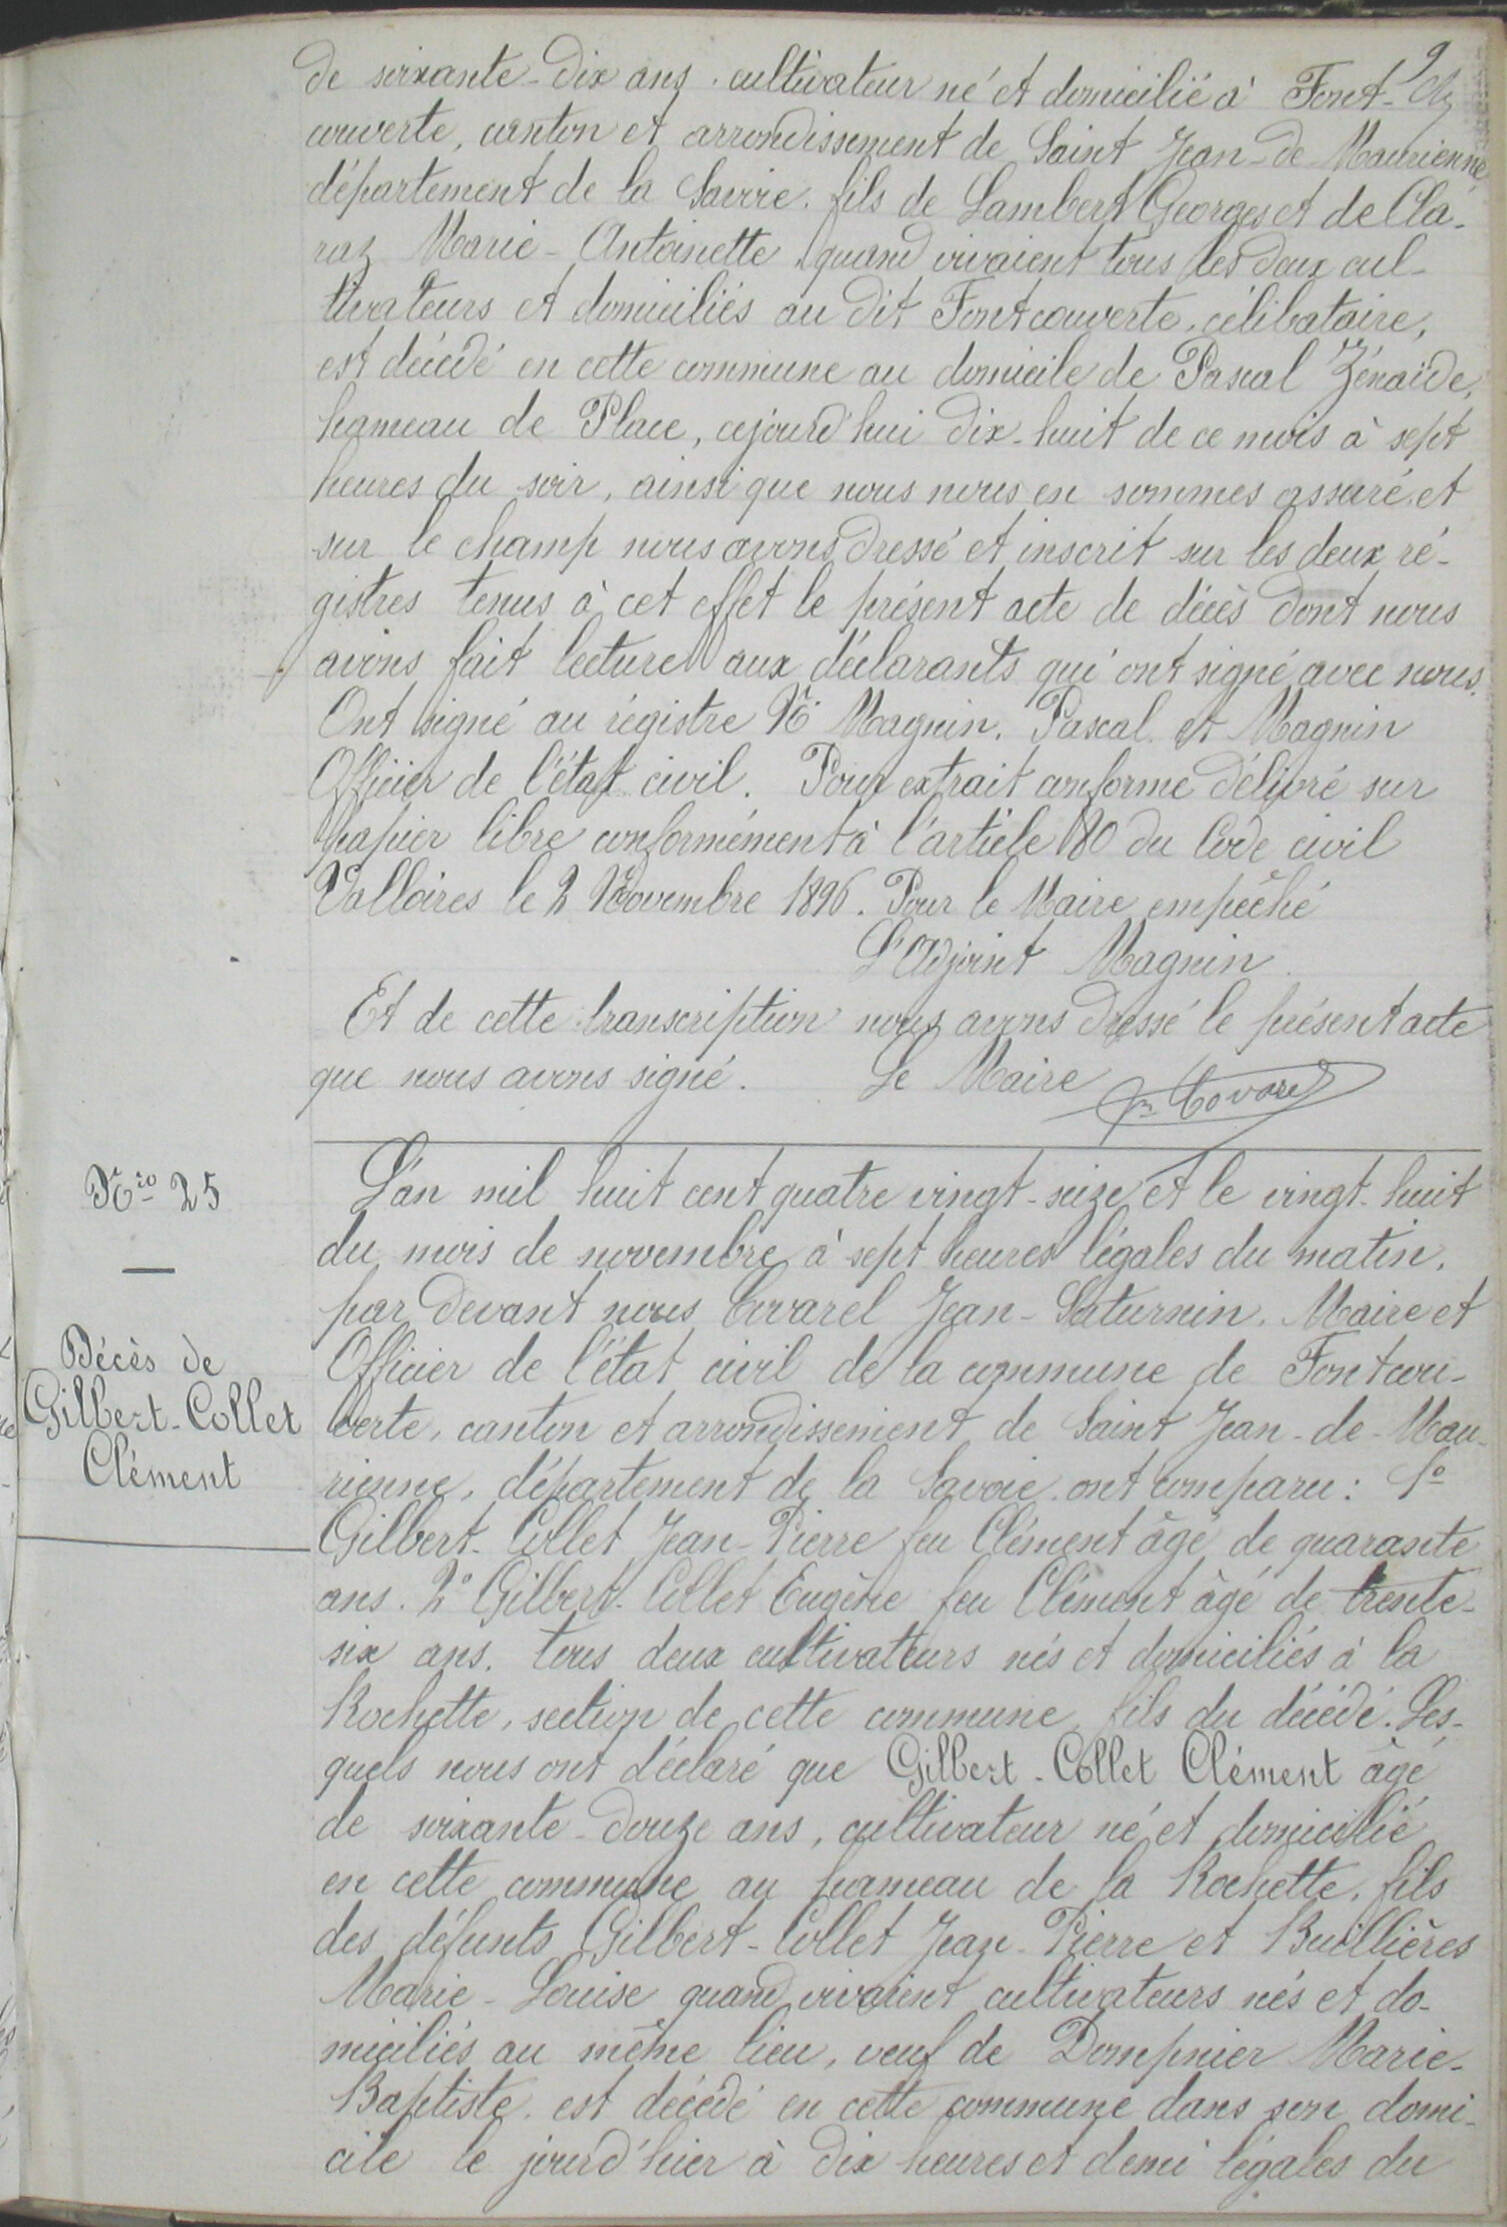 9
de soixante-dix ans, cultivateur né et domicilié à Font-
couverte, canton et arrondissement de Saint Jean-de-Maurienne,
département de la Savoie, fils de Lambert Georges et de Cla-
raz Marie-Antoinette quand vivaient tous les deux cul-
tivateurs et domiciliés au dit Fontcouverte, célibataire,
est décédé en cette commune au domicile de Pascal Zénaïde,
hameau de Place, cejourd'hui dix-huit de ce mois à sept
heures du soir, ainsi que nous nous en sommes assuré et
sur le champ nous avons dressé et inscrit sur les deux ré-
gistres tenus à cet effet le présent acte de décès dont nous
avons fait lecture aux déclarants qui ont signé avec nous.
Ont signé au régistre Magnin, Pascal et Magnin
Officier de l'état civil. Pour extrait conforme délivré sur
papier libre conformément à l'article 80 du Code civil
Valloires le 2 Novembre 1896. Pour le Maire empêché
L'Adjoint Magnin
Et de cette transcription nous avons dressé le présent acte
que nous avons signé. Le Maire Covarel
Nro 25
Décès de
Gilbert-Collet
Clément
L'an mil huit cent quatre vingt-seize et le vingt-huit
du mois de novembre à sept heures légales du matin,
par devant nous Covarel Jean-Saturnin, Maire et
Officier de l'état civil de la commune de Fontcou-
verte, canton et arrondissement de Saint Jean-de-Mau-
rienne, département de la Savoie ont comparu: 1°
Gilbert-Collet Jean-Pierre feu Clément âgé de quarante
ans. 2° Gilbert-Collet Eugène feu Clément âgé de trente-
six ans, tous deux cultivateurs nés et domiciliés à la
Rochette, section de cette commune, fils du décédé. Les-
quels nous ont déclaré que Gilbert-Collet Clément âgé
de soixante-douze ans, cultivateur né et domicilié
en cette commune au hameau de la Rochette, fils
des défunts Gilbert-Collet Jean-Pierre et Buillières
Marie-Louise quand vivaient cultivateurs nés et do-
miciliés au même lieu, veuf de Dompnier Marie-
Baptiste, est décédé en cette commune dans son domi-
cile le jourd'hier à dix heures et demi légales du